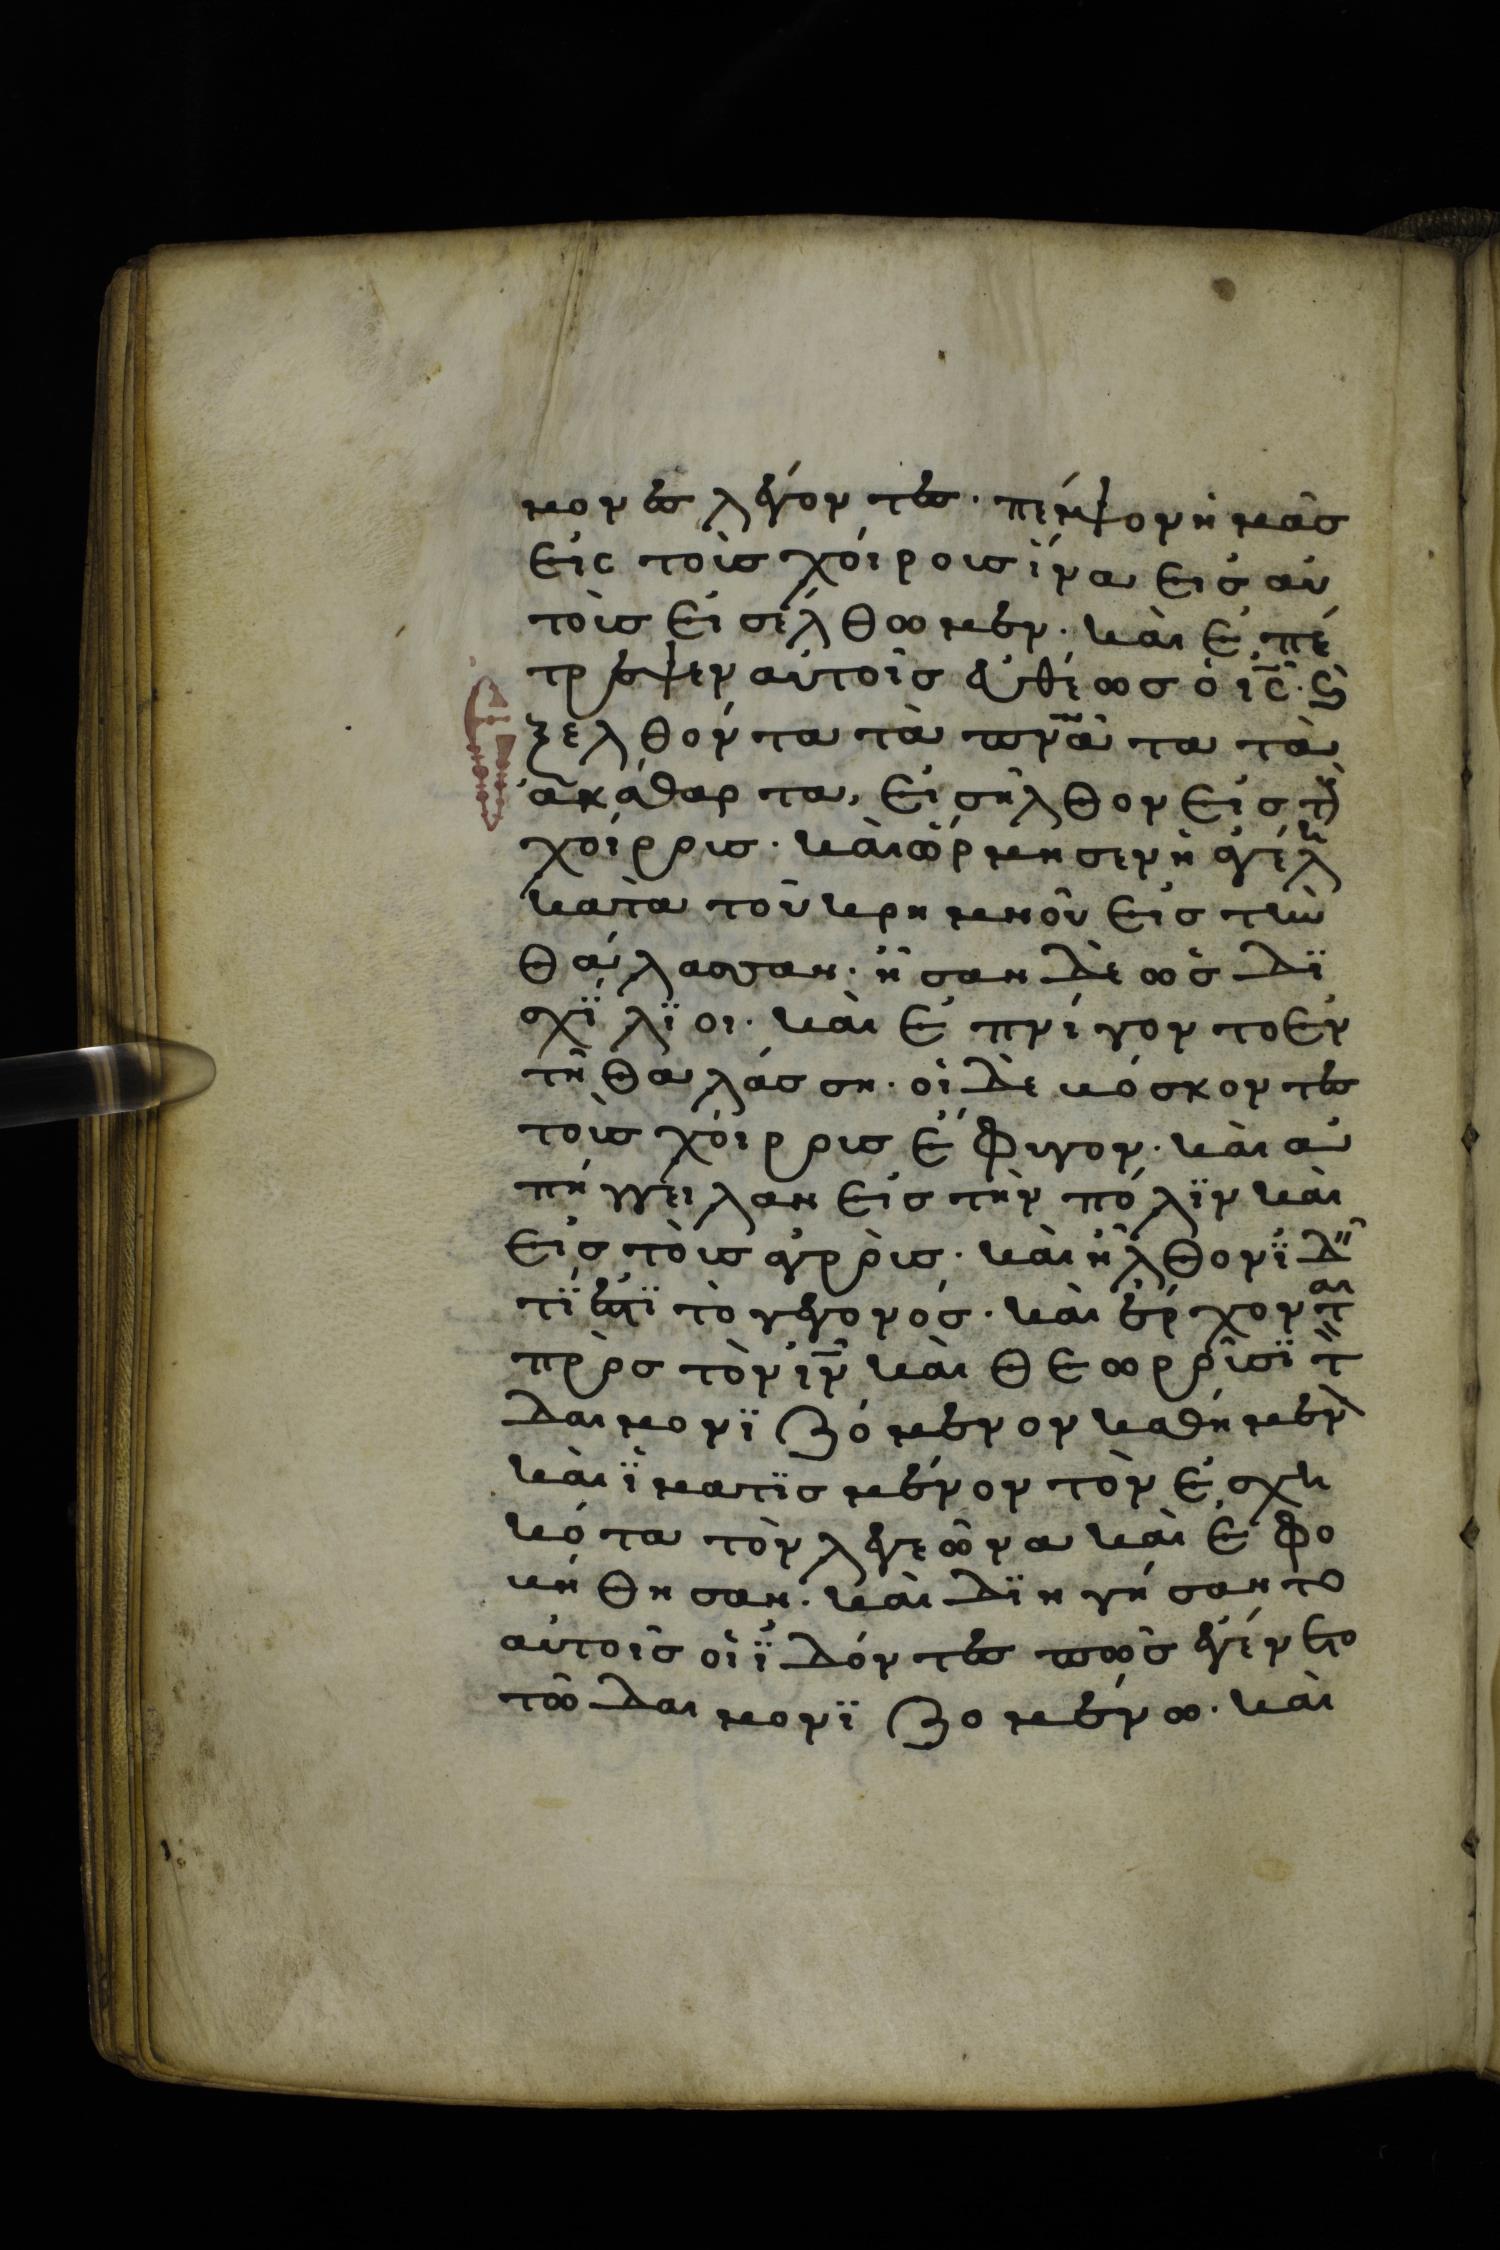 μονες λέγοντες· πέμψον ἡμᾶς
εἰς τοὺς χοίρους ἵνα εἰς αὐ
τοὺς εἰσέλθωμεν· καὶ ἐπέ
τρεψεν αὐτοῖς εὐθέως ὁ ις̅· ϗ
Ἐξελθόντα τὰ πν̅ατα τὰ
ἀκάθαρτα, εἰσῆλθον εἰς τ(οὺς)
χοίρους· καὶ ὥρμησεν ἡ ἀγέλη
κατὰ τοῦ κρημνοῦ εἰς τὴν
θάλασσαν· ἦσαν δὲ ὡς δϊ
σχΐλϊοι· καὶ ἐπνίγοντο ἐν
τῆ θαλάσση· οἱ δὲ βόσκοντες
τοὺς χοίρους ἔφυγον· καὶ ἀ
πήγγειλαν εἰς τὴν πόλϊν καὶ
εἰς τοὺς ἀγρούς· καὶ ἦλθον ϊδεῖ(ν)
τΐ ἐστϊ τὸ γεγονός· καὶ ἔρχονται
πρὸς τὸν ιν̅ καὶ θεωροῦσϊ τ(ὸν)
δαιμονϊζόμενον καθήμενον
καὶ ϊματϊσμένον τὸν ἐσχη
κότα τὸν λεγεῶνα καὶ ἐφο
βήθησαν· καὶ δϊηγήσαντο
αὐτοῖς οἱ ϊδόντες πῶς ἐγένετο
τῶ δαιμονϊζομένω· καὶ